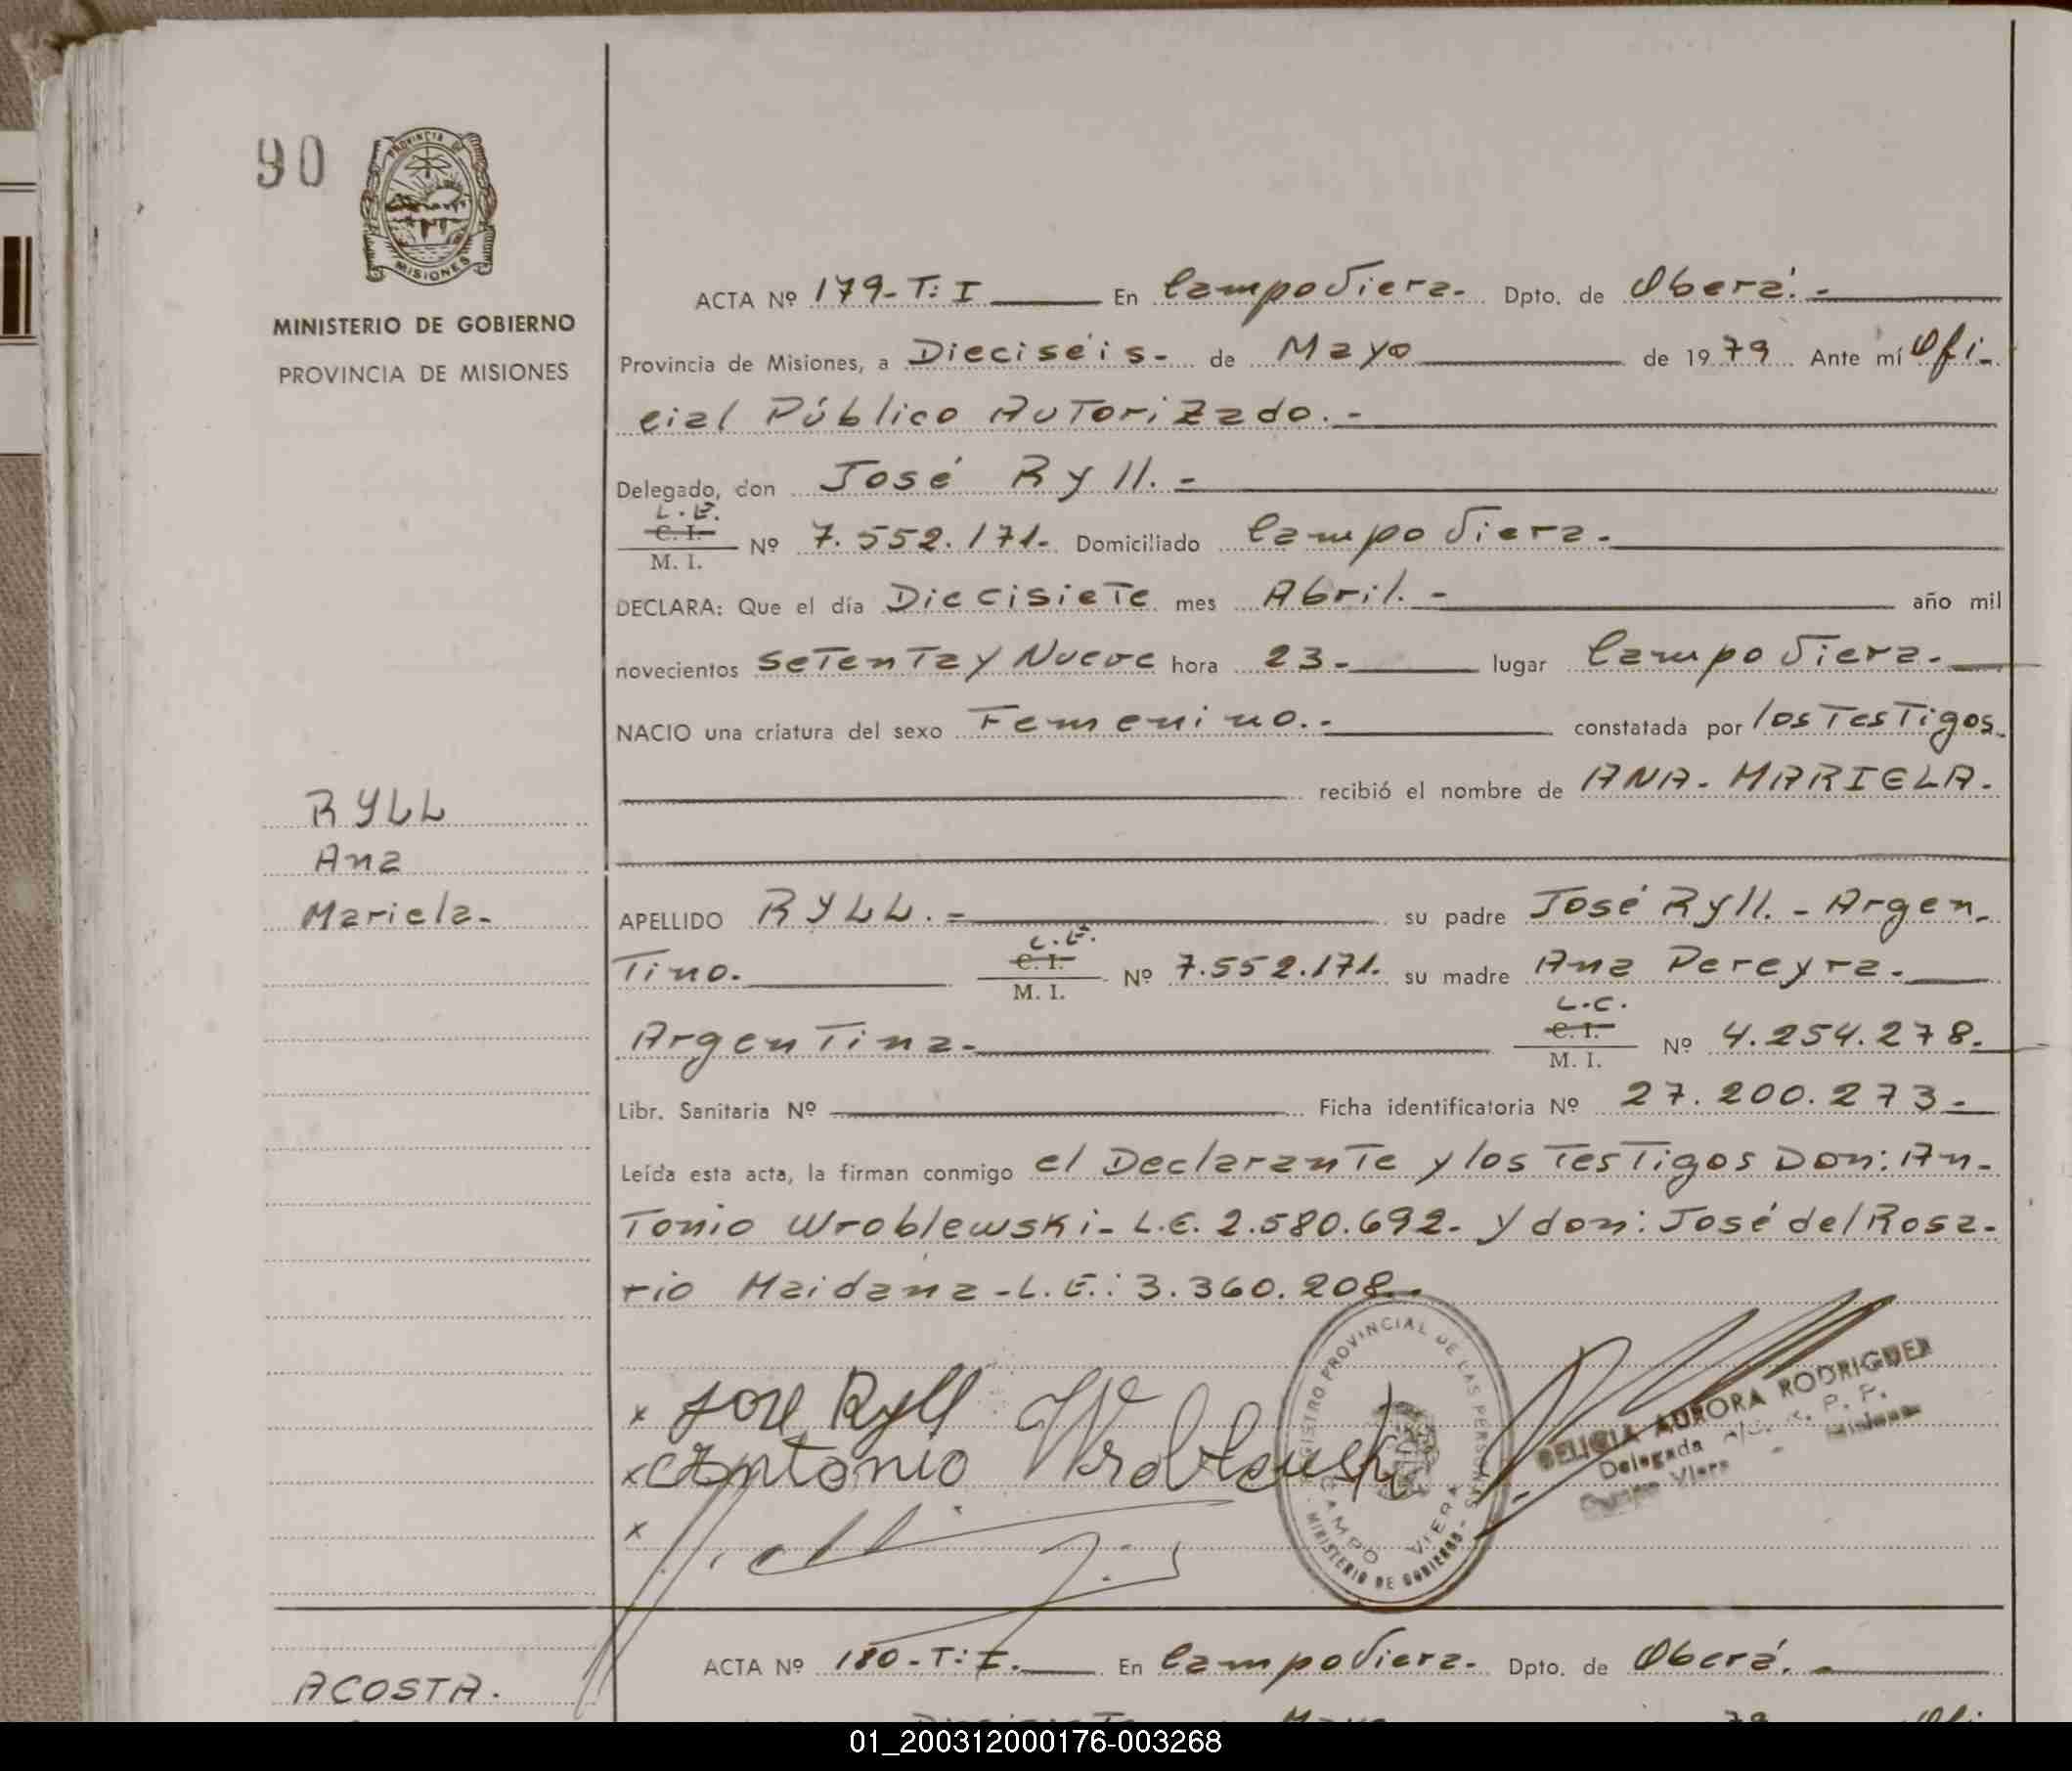 90
PROVINCIA DE
MISIONES
MINISTERIO DE GOBIERNO
PROVINCIA DE MISIONES
ACTA Nº 179-T: I En Campo Viera.- Dpto. de Oberá.-
Provincia de Misiones, a Dieciséis- de Mayo de 1979 Ante mí Ofi-
cial Público Autorizado.-
Delegado, don José Ryll.-
L.E.
C. I.
M. I. Nº 7.552.171.- Domiciliado Campo Viera.-
DECLARA: Que el día Diecisiete mes Abril.- año mil
novecientos Setenta y Nueve hora 23.- lugar Campo Viera.-
NACIO una criatura del sexo Femenino.- constatada por los Testigos.
recibió el nombre de ANA-MARIELA.
RYLL
Ana
Mariela-
APELLIDO RYLL.- su padre José Ryll.- Argen-
L.E.
tino. C. I.
M. I. Nº 7.552.171. su madre Ana Pereyra.-
L.C.
Argentina- C. I.
M. I. Nº 4.254.278.
Libr. Sanitaria Nº Ficha identificatoria Nº 27.200.273-
Leída esta acta, la firman conmigo el Declarante y los Testigos Don: An-
tonio Wroblewski- L.E. 2.580.692- y don: José del Rosa-
rio Maidana-L.E.: 3.360.208.-
x José Ryll
x Antonio Wroblewski
x
REGISTRO PROVINCIAL DE LAS PERSONAS
CAMPO VIERA
MINISTERIO DE GOBIERNO
DELICIA AURORA RODRIGUEZ
Delegada R. P. P.
Campo Viera - Misiones
ACTA Nº 180-T: I.- En Campo Viera.- Dpto. de Oberá.-
ACOSTA.
01_200312000176-003268